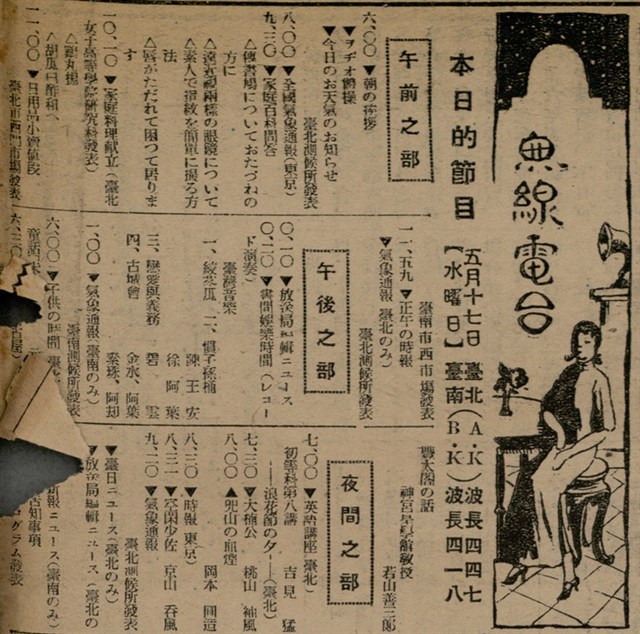 無線電台
本日的節目
五月十七日
【水曜日】
臺北(A・K)波長四四七
臺南(B・K)波長四一八
午前之部
六、〇〇▼朝の挨拶
▼ラヂオ體操
▼今日のお天氣のお知らせ
臺北測候所發表
八、〇〇▼全國氣象通報(東京)
九、三〇▼家庭百科問答
△傳書鳩についておたづねの
方に
△遠近視兩樣の眼鏡について
△素人で指紋を簡單に撮る方
法
△唇がたゞれて困つて居りま
す
一〇、一〇▼家庭料理獻立(臺北
女子高等學院研究科發表)
△胡瓜
一一、〇〇▼日用品小賣値段
臺北市西門市場發表
臺南市西市場發表
一一、五九▼正午の時報
▼氣象通報(臺北のみ)
臺北測候所發表
午後之部
〇、一〇▼放送局編輯ニュース
〇、二〇▼晝間娛樂時間(レコー
ド演奏)
臺灣音樂
三、戀愛與義務
四、古城會
陳王安
徐阿葉
碧雲
金水、阿葉
一、〇〇▼氣象通報(臺南のみ)
臺南測候所發表
六、〇〇▼子供の時間
童話
六、三〇
豐太閤の話
神宮皇學館敎授
若山善三郎
夜間之部
七、〇〇▼英語講座(臺北)
初等科第八講
吉見猛
――浪花節の夕――(臺北)
七、三〇▼大楠公
桃山袖風
八、〇〇▲兜山の血煙
岡本圓造
八、三〇▼時報(東京)
八、三一▼空閑少佐
京山呑風
九、二〇▼氣象通報
臺北測候所發表
▼臺日ニュース(臺北のみ)
▼放送局編輯ニュース(臺北の
ニュース(臺南のみ)
告知事項
グラム發表